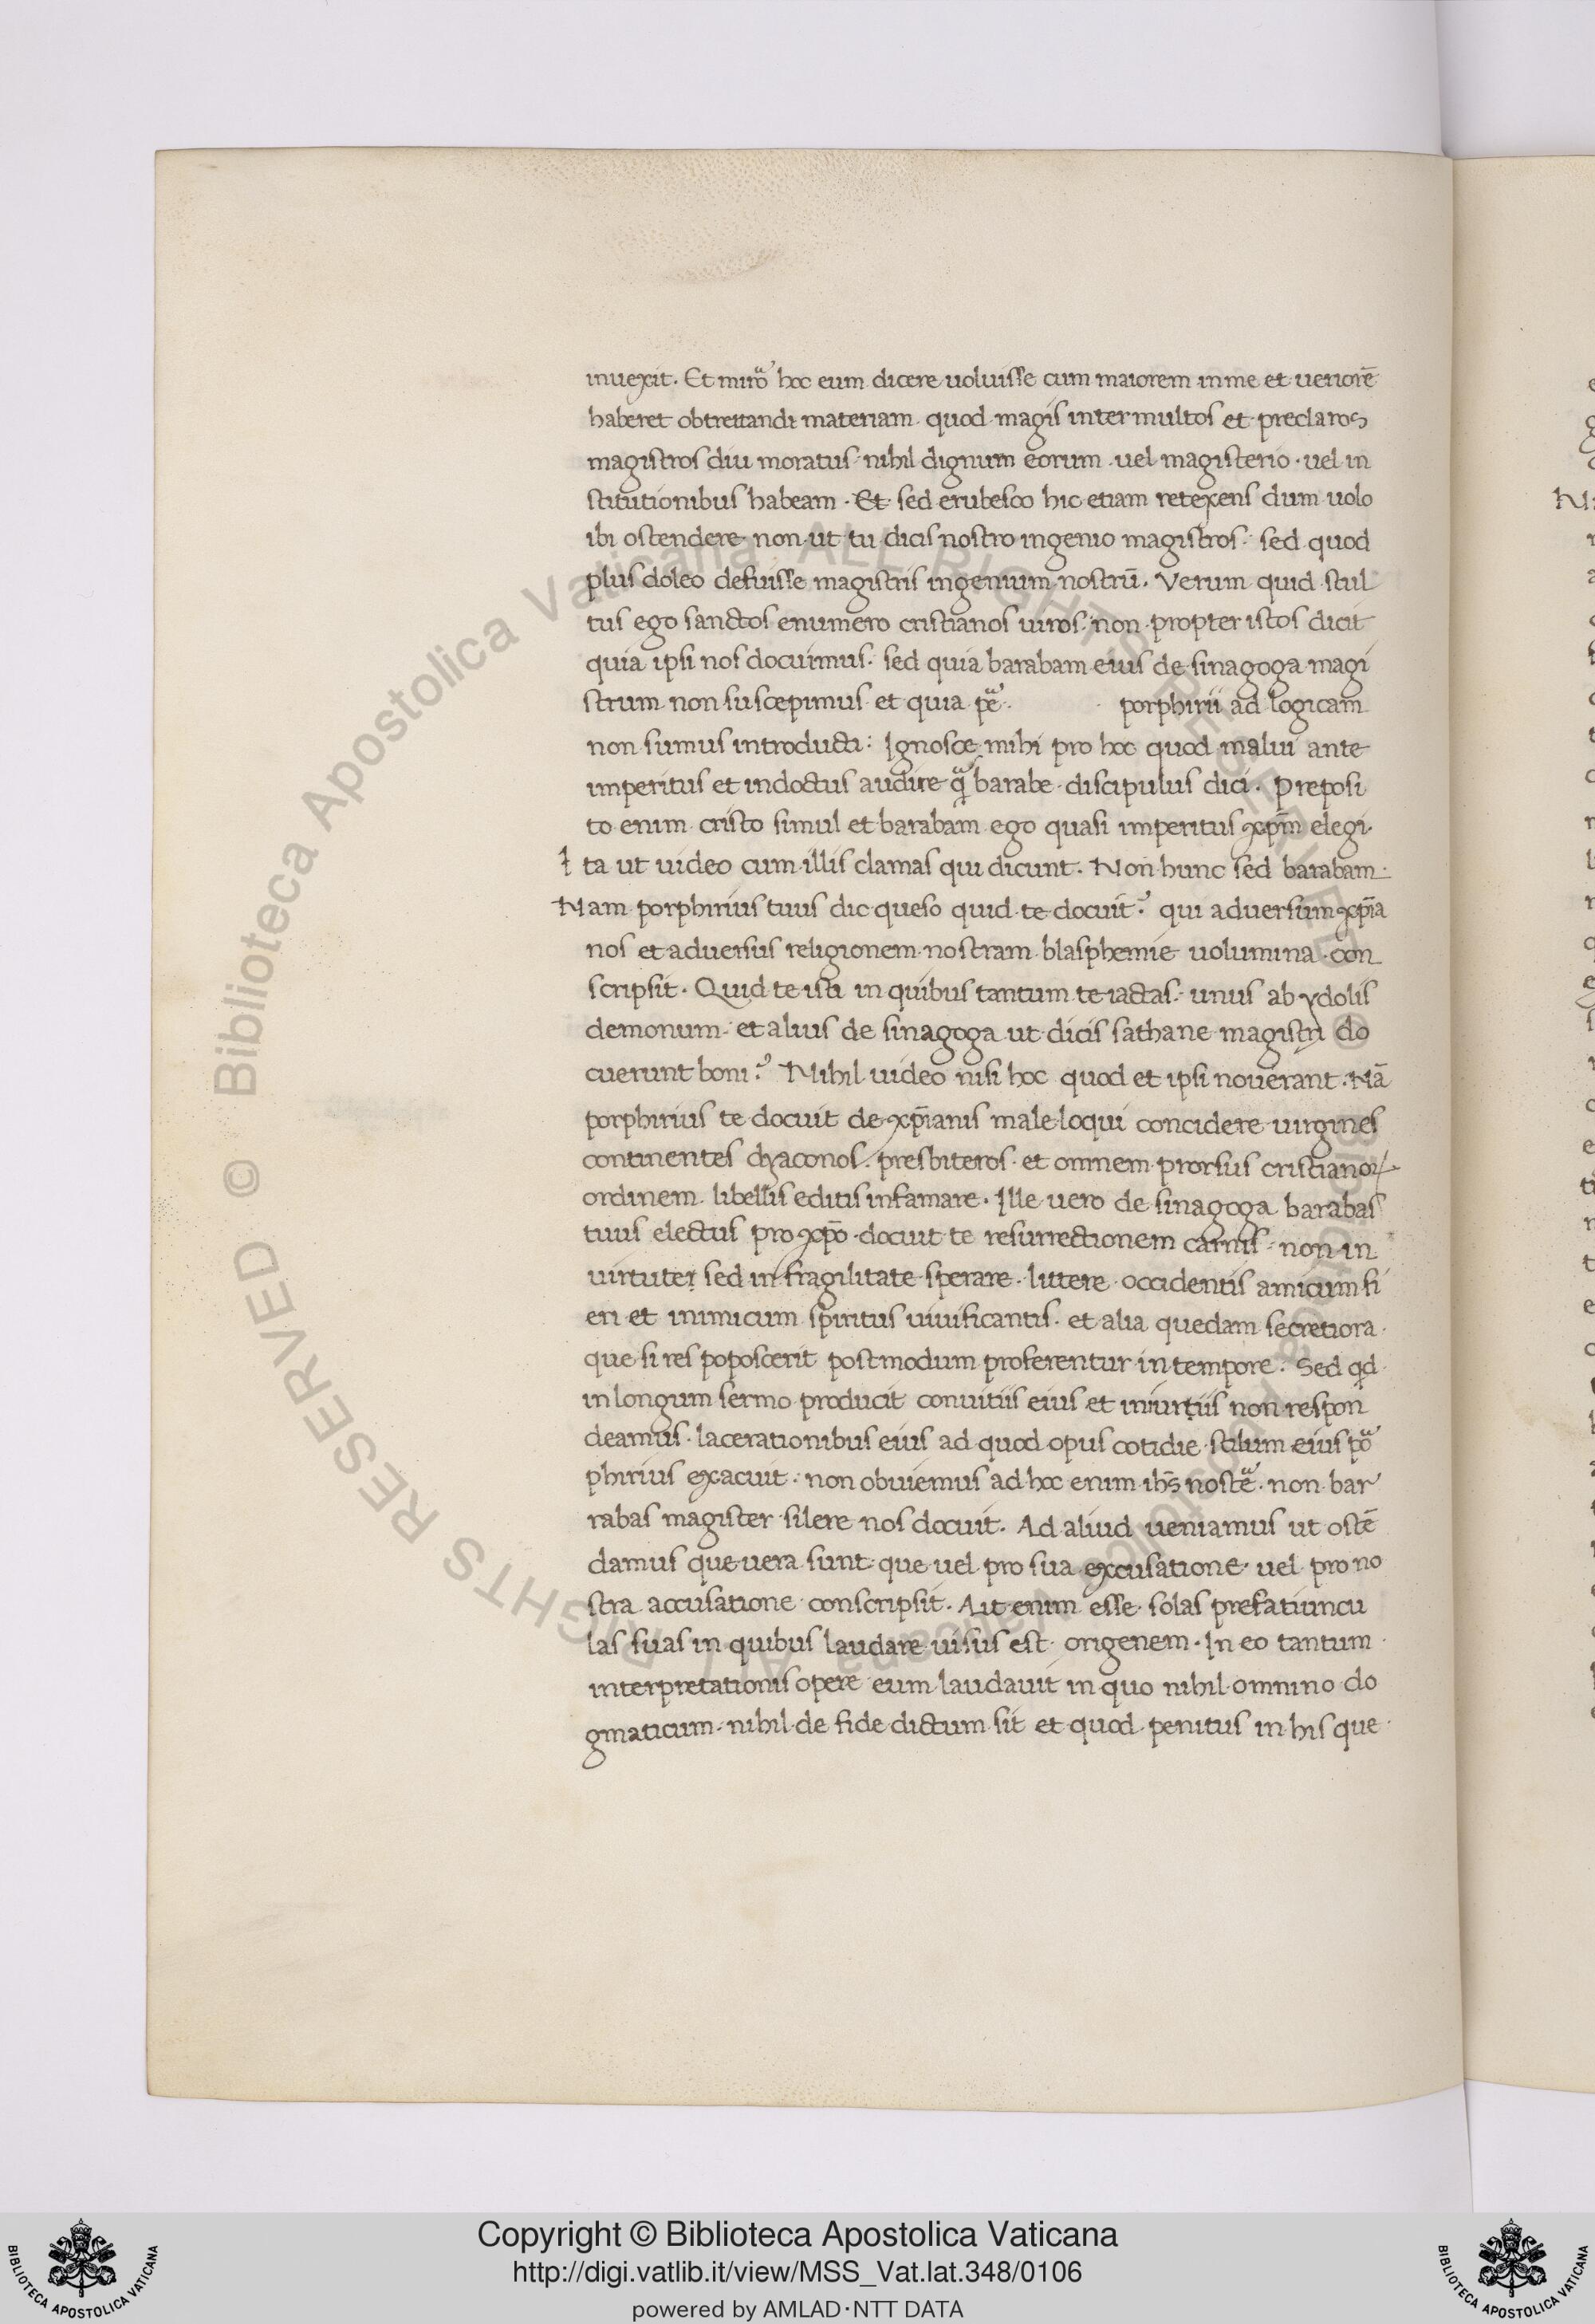 inuexit. Et miror̃ hoc eum dicere uoluisse cum maiorem in me et ueriorē
haberet obtrettandi materiam quod magis inter multos et preclaros
magistros diu moratus nihil dignum eorum uel magisterio uel in
stitutionibus habeam. Et sed erubesco hic etiam retexens dum uolo
ibi ostendere non ut tu dicis nostro ingenio magistros sed quod
plus doleo defuisse magistris ingenium nostrū. Verum quid stul
tus ego sanctos enumero cristianos uiros non propter istos dicit
quia ipsi nos docuimus sed quia barabam eius de sinagoga magi
strum non suscepimus et quia porphirii ad logicam
non sumus introducti: Ignosce mihi pro hoc quod malui ante
imperitus et indoctus audire q̃ barabe discipulus dici. Preposi
to enim cristo simul et barabam ego quasi imperitus xp̄m elegi.
I ta ut uideo cum illis clamas qui dicunt. Non hunc sed barabam.
Nam porphirius tuus dic queso quid te docuit? qui aduersum xp̄ia
nos et aduersus religionem nostram blasphemie uolumina con
scripsit. Quid te isti in quibus tantum te iactas unus ab ydolis
demonum et alius de sinagoga ut dicis sathane magistri do
cuerunt boni? Nihil uideo nisi hoc quod et ipsi nouerant. Nā
porphirius te docuit de xp̄ianis male loqui concidere uirgines
continentes dyaconos presbiteros et omnem prorsus cristianoꝝ
ordinem libellis editis infamare. Ille uero de sinagoga barabas
tuus electus pro xp̄o docuit te resurrectionem carnis non in
uirtute sed in fragilitate sperare littere occidentis amicum fi
eri et inimicum spiritus uiuificantis et alia quedam secretiora
que si res poposcerit postmodum proferentur in tempore. Sed qd
in longum sermo producit conuitiis eius et iniuriis non respon
deamus lacerationibus eius ad quod opus cotidie stilum eius por̃
phirius exacuit non obuiemus ad hoc enim ihs̄ noster̃ non bar
rabas magister silere nos docuit. Ad aliud ueniamus ut ostē
damus que uera sunt que uel pro sua excusatione uel pro no
stra accusatione conscripsit. Ait enim esse solas prefatiuncu
las suas in quibus laudare uisus est origenem. In eo tantum
interpretationis opere eum laudauit in quo nihil omnino do
gmaticum nihil de fide dictum sit et quod penitus in his que
© Biblioteca Apostolica Vaticana ALL RIGHTS RESERVED
Copyright © Biblioteca Apostolica Vaticana
http://digi.vatlib.it/view/MSS_Vat.lat.348/0106
powered by AMLAD·NTT DATA
BIBLIOTECA APOSTOLICA VATICANA
BIBLIOTECA APOSTOLICA VATICANA